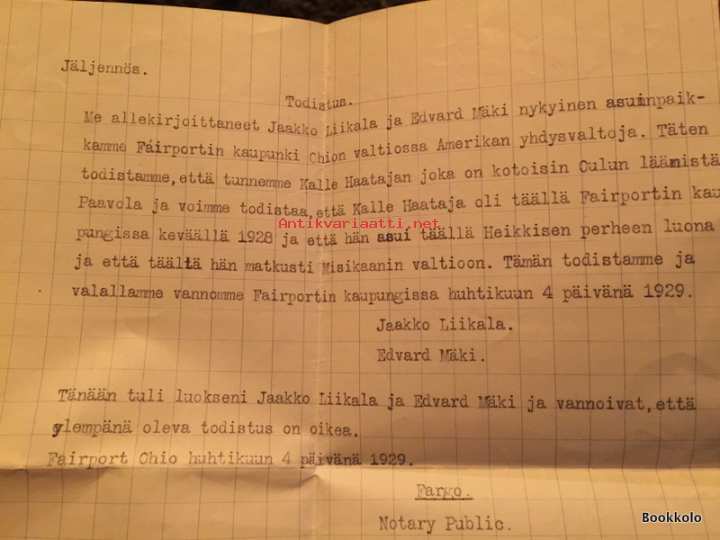 Jäljennös.
Todistus.
Me allekirjoittaneet Jaakko Liikala ja Edvard Mäki nykyinen asuinpaik-
kamme Fairportin kaupunki Ohion valtiossa Amerikan yhdysvaltoja. Täten
todistamme, että tunnemme Kalle Haatajan joka on kotoisin Oulun läänistä
Paavola ja voimme todistaa, että Kalle Haataja oli täällä Fairportin kau
Antikvariaatti.net
pungissa keväällä 1928 ja että hän asui täällä Heikkisen perheen luona
ja että täältä hän matkusti Misikaanin valtioon. Tämän todistamme ja
valallamme vannomme Fairportin kaupungissa huhtikuun 4 päivänä 1929.
Jaakko Liikala.
Edvard Mäki.
Tänään tuli luokseni Jaakko Liikala ja Edvard Mäki ja vannoivat, että
ylempänä oleva todistus on oikea.
Fairport Ohio huhtikuun 4 päivänä 1929.
Fargo.
Notary Public.
Bookkolo